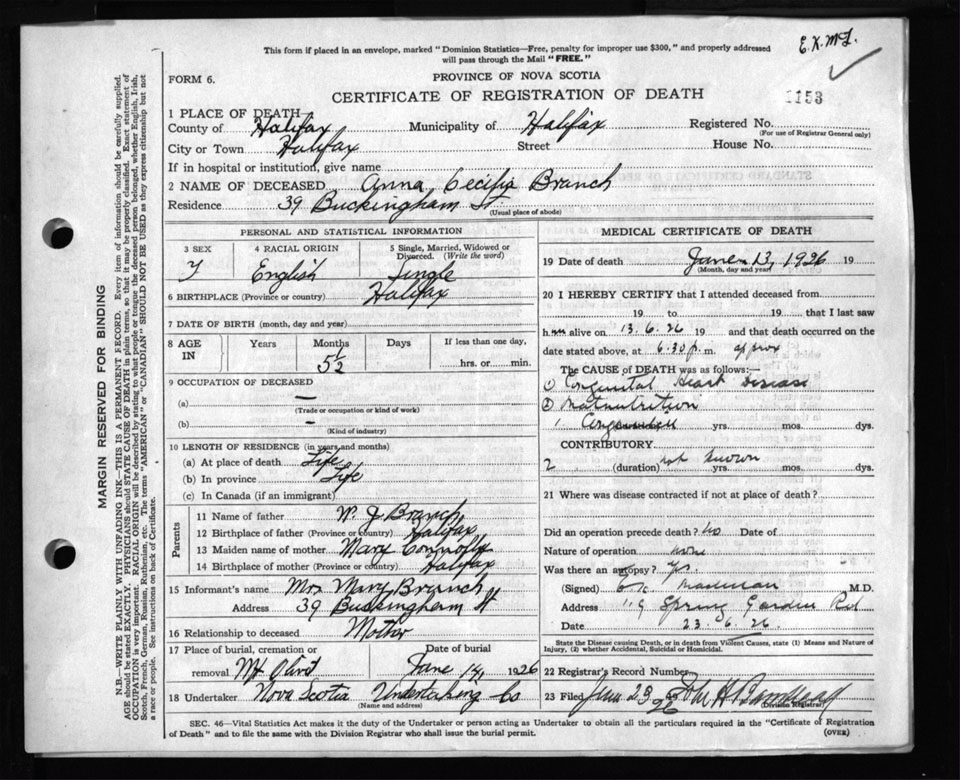 E.K.M.
This form if placed in an envelope, marked "Dominion Statistics—Free, penalty for improper use $300," and properly addressed
will pass through the Mail "FREE."
FORM 6.
PROVINCE OF NOVA SCOTIA
CERTIFICATE OF REGISTRATION OF DEATH
1153
1 PLACE OF DEATH—
County of Halifax Municipality of Halifax Registered No.
(For use of Registrar General only)
City or Town Halifax Street House No.
If in hospital or institution, give name
2 NAME OF DECEASED Anna Cecilia Branch
Residence 39 Buckingham St.
(Usual place of abode)
PERSONAL AND STATISTICAL INFORMATION
3 SEX 4 RACIAL ORIGIN 5 Single, Married, Widowed or
Divorced. (Write the word)
F English Single
6 BIRTHPLACE (Province or country) Halifax
7 DATE OF BIRTH (month, day and year)
8 AGE IN Years Months Days If less than one day,
5½ hrs. or min.
9 OCCUPATION OF DECEASED
(a) —
(Trade or occupation or kind of work)
(b) —
(Kind of industry)
10 LENGTH OF RESIDENCE (in years and months)
(a) At place of death Life
(b) In province Life
(c) In Canada (if an immigrant)
Parents
11 Name of father W. J Branch
12 Birthplace of father (Province or country) Halifax
13 Maiden name of mother Mary Connolly
14 Birthplace of mother (Province or country) Halifax
15 Informant's name Mrs Mary Branch
Address 39 Buckingham St
16 Relationship to deceased Mother
17 Place of burial, cremation or Date of burial
removal Mt Olivet June 14, 1926
18 Undertaker Nova Scotia Undertaking Co
(Name and address)
MEDICAL CERTIFICATE OF DEATH
19 Date of death June 13, 1926 19
(Month, day and year)
20 I HEREBY CERTIFY that I attended deceased from
19 to 19 that I last saw
h alive on 13.6.26 19 and that death occurred on
date stated above, at 6.30 p. m. approx
The CAUSE of DEATH was as follows:—
① Congenital Heart Disease
② Malnutrition
1 Congenital yrs. mos. dys.
CONTRIBUTORY
2 (duration) not known yrs. mos. dys.
21 Where was disease contracted if not at place of death?
Did an operation precede death? No Date of
Nature of operation none
Was there an autopsy? Yes
(Signed) E. K. M.D.
Address 119 Spring Garden Rd
Date 23.6.26.
State the Disease causing Death, or in death from Violent Causes, state (1) Means and Nature of
Injury, (2) whether Accidental, Suicidal or Homicidal.
22 Registrar's Record Number
23 Filed June 23 26
(Division Registrar)
SEC. 46—Vital Statistics Act makes it the duty of the Undertaker or person acting as Undertaker to obtain all the particulars required in the "Certificate of Registration
of Death" and to file the same with the Division Registrar who shall issue the burial permit.
(OVER)
MARGIN RESERVED FOR BINDING
N.B.—WRITE PLAINLY WITH UNFADING INK—THIS IS A PERMANENT RECORD. Every item of information should be carefully supplied.
AGE should be stated EXACTLY. PHYSICIANS should STATE CAUSE OF DEATH in plain terms, so that it may be properly classified. Exact statement of
OCCUPATION is very important. RACIAL ORIGIN will be described by stating to what people or tongue the deceased person belonged, whether English, Irish,
Scotch, French, German, Russian, Ruthenian, etc. The terms "AMERICAN" or "CANADIAN" SHOULD NOT BE USED as they express citizenship but not
a race or people. See instructions on back of Certificate.